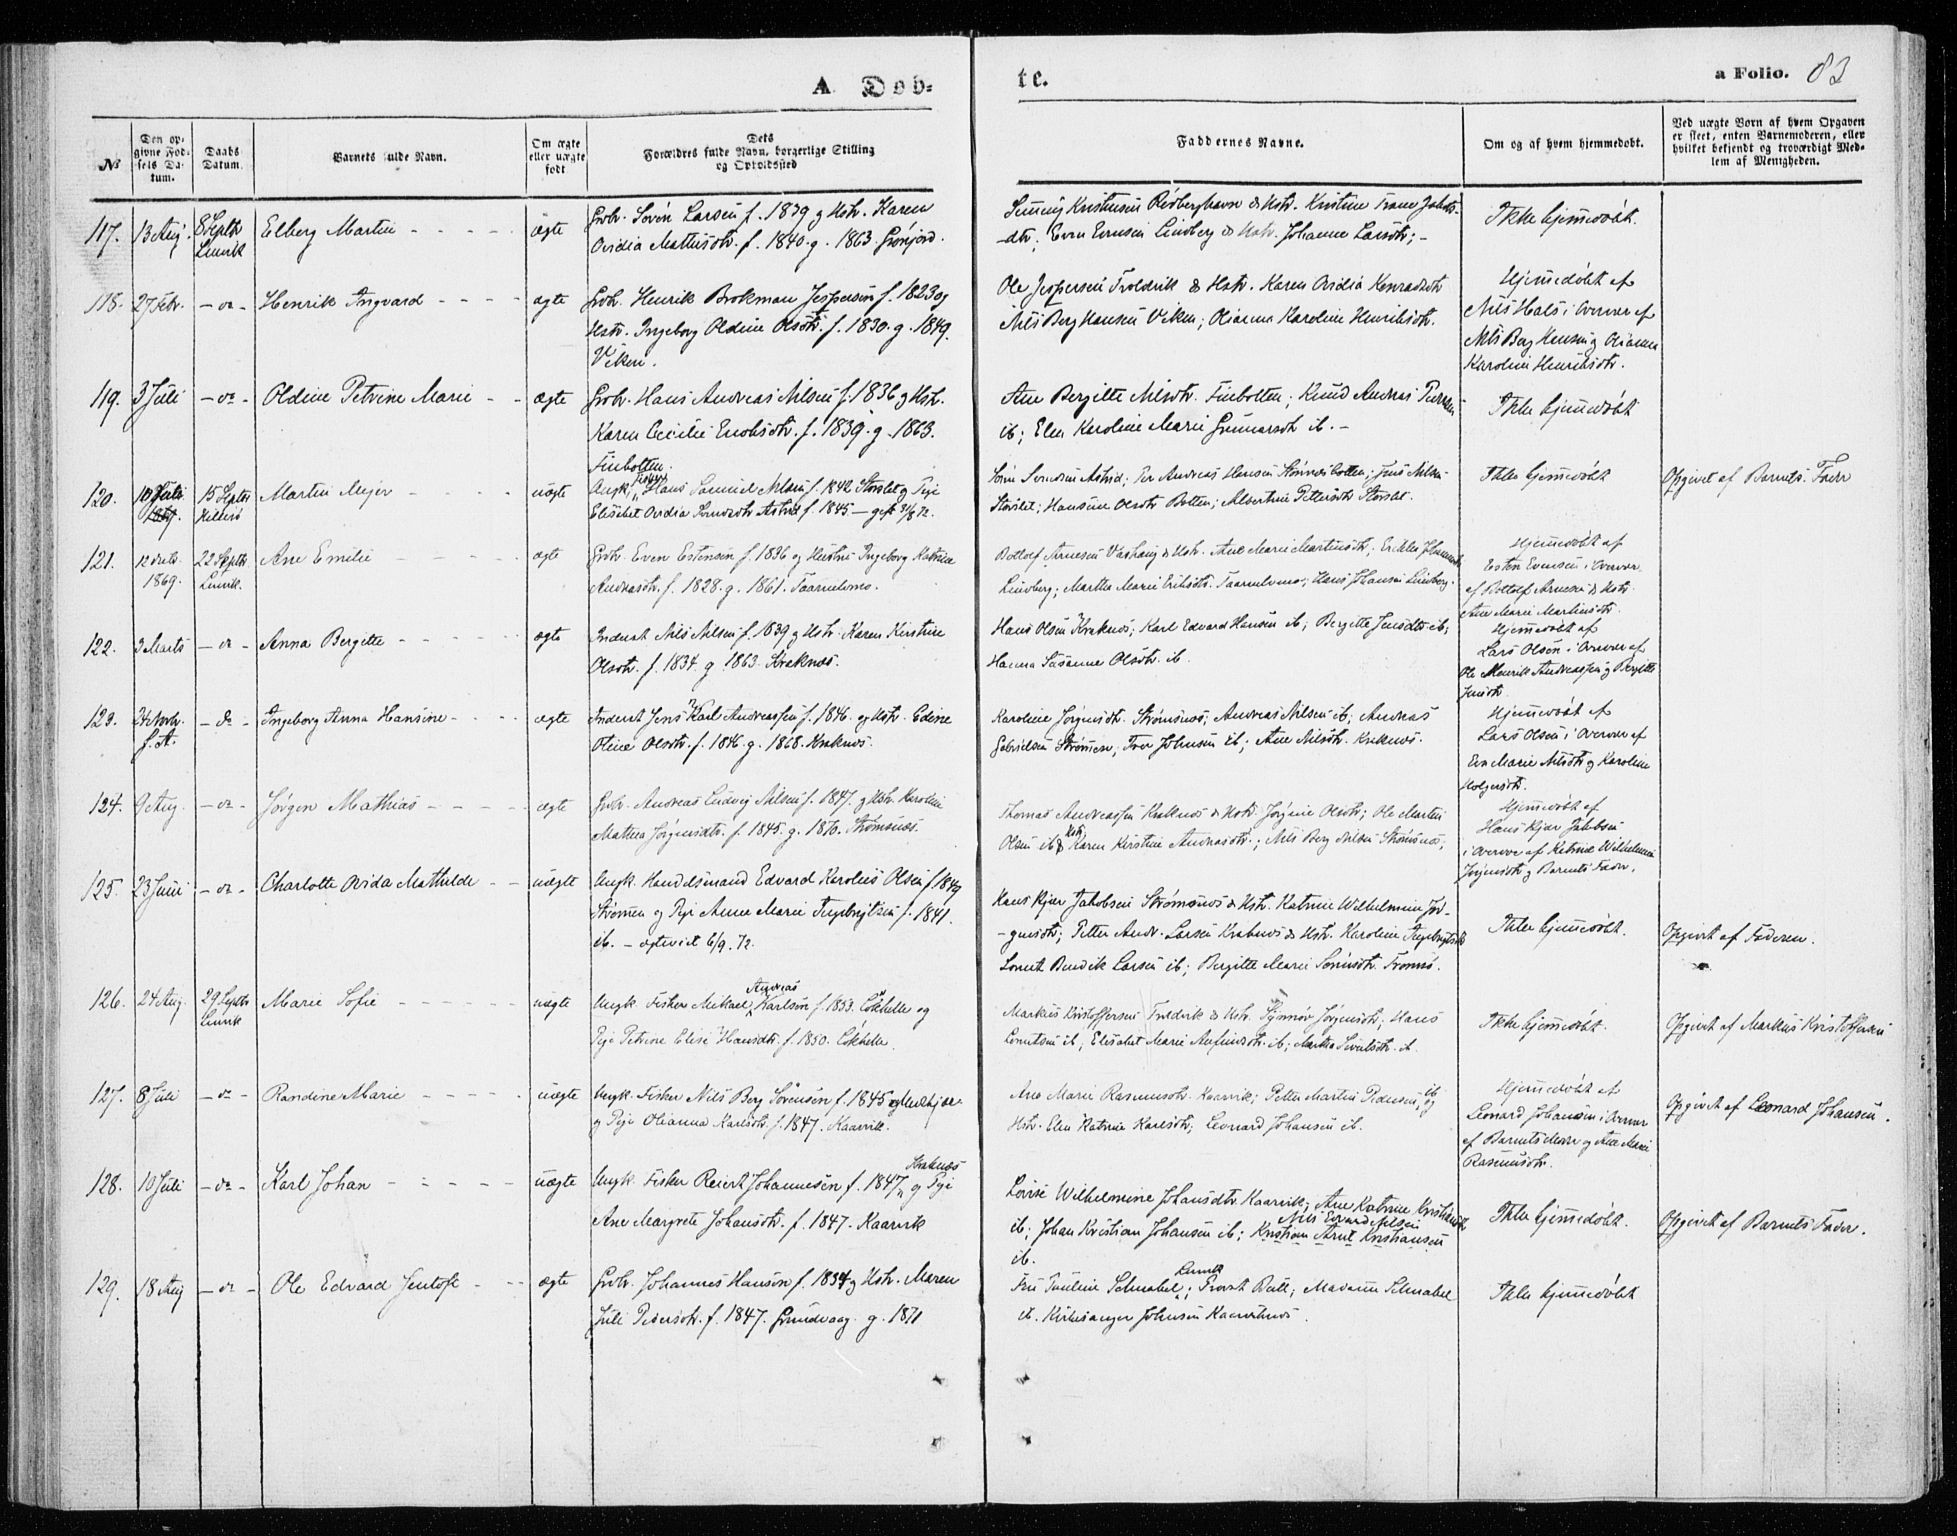 A Døb-
te.
a Folio. 83
№
Den op-
givne Fød-
sels Da-
tum.
Daabs
Datum.
Barnets fulde Navn.
Om ægte
eller uægte
født
Dets
Forældres fulde Navn, borgerlige Stilling
og Opholdssted
Faddernes Navne.
Om og af hvem hjemmedøbt.
Ved uægte Børn af hvem Opgaven
er skeet, enten Barnemoderen, eller
hvilket bekjendt og troværdigt Med-
lem af Menigheden.
117. 13 Aug. 8 Septb Elberg Martin ægte Grbr. Sørén Larsen f. 1839 g Hstr. Karen
Lenvik Ovidia Mathisdtr. f. 1840. g. 1863. Grønjord.
Kristensen Rødberghavn & Hstr. Kristine
dtr; Even Evensen Lindberg & Hstr. Johanne Larsdtr; -
Ikke hjemmedøbt.
118. 27 Febr. - do - Henrik Angvard ægte Grbr. Henrik Brokman Jespersen f. 1823 og
Hstr. Ingeborg Oldine Olsdtr. f. 1830. g. 1849.
Viken.
Ole Jespersen Troldvik & Hstr. Karen Ovidia Konradsdtr
Nils Berg Hansen Viken; Olianna Karoline Henriksdtr.
Hjemmedøbt af
Nils Hals i Overvær af
Nils Berg Hansen g Olianna
Karoline Henriksdtr.
119. 3 Juli - do - Oldine Petrine Marie ægte Grbr. Hans Andreas Nilsen f. 1836 g Hstr.
Karen Cecilie Enoksdtr. f. 1839. g. 1863.
Finbotten.
Ane Bergitte Nilsdtr. Finbotten; Knud Andreas
ib; Elen Karoline Marie Gunnarsdtr ib. -
Ikke hjemmedøbt
120. 10 Juli 15 Septbr Martin Mejer uægte Ungk. Fisker Hans Samuel Nilsen f. 1842 Storslet g Pige
1869. Hillesø Elisabet Ovidia f. 1845 - gift 3/8 72.
Astrid; Per Andreas Hansen
Storslet; Hansine Olsdtr Botten; Albertine Pettersdtr Storslet.
Ikke hjemmedøbt
Opgivet af Barnets Fader
121. 12 22 Septbr. Ane Emilie ægte Grbr. Even Estensen f. 1836 og Hustru Ingeborg Katrine
1869. Lenvik. Andreasdtr. f. 1828. g. 1861. Taarnelvmo.
Bottolf Arnesen Vashaug & Hstr. Ane Marie Martinsdtr;
Lindberg; Martha Marie Eriksdtr. Taarnelvmo; Hans Johansen Lindberg.
Hjemmedøbt af
Esten Evensen i Overvær
af Bottolf Arnesen & Hstr.
Ane Marie Martinsdtr.
122. 3 Marts - do - Anna Bergitte ægte Inderst Nils Nilsen f. 1839 g Hstr. Karen Kirstine
Olsdtr. f. 1834. g 1863. Kraknæs.
Hans Olsen Kraknæs; Karl Edvard Hansen ib; Bergitte Jensdtr ib;
Hanna Susanne Olsdtr. ib.
Hjemmedøbt af
Lars Olsen i Overvær af
Ole Henrik Andreassen g Bergitte
Jensdtr.
123. 24 Novbr. - do - Ingeborg Anna Hansine ægte Inderst Jens Karl Andreassen f. 1846. og Hstr. Edine
f. A. Oline Olsdtr. f. 1846. g. 1868. Kraknæs.
Karoline Jørgensdtr. Strømsnæs; Andreas Nilsen ib; Andreas
Gabrielsen Strømen; Iver Johnsen ib; Ane Nilsdtr. Kraknæs.
Hjemmedøbt af
Lars Olsen i Overvær af
Marie Nilsdtr og Karoline
Holgersdtr.
124. 9 Aug. - do - Jørgen Mathias ægte Grbr. Andreas Ludvig Nilsen f. 1847. g Hstr. Karoline
Mathea Jørgensdtr. f. 1845. g. 1870. Strømsnæs.
Thomas Andreassen Kraknæs & Hstr. Jørgine Olsdtr; Ole Martin
Olsen ib & Hstr. Karen Kirstine Andreasdtr.; Nils Berg Nilsen Strømsnæs;
Hjemmedøbt af
Hans Kjær Jakobsen
i Overvær af Katrine Wilhelmine
Jørgensdtr g Barnets Fader.
125. 23 Juni - do - Charlotte Ovida Mathilde uægte Ungk. Handelsmand Edvard Karolius Olsen f. 1849
Strømmen og Pige Anne Marie Ingebrigtsen f. 1841.
ib. - ægteviet 6/9. 72.
Hans Kjær Jakobsen Strømsnæs & Hstr. Katrine Wilhelmine Jør-
gensdtr; Petter Andr. Larsen Kraknæs & Hstr. Karoline Ingebrigtsdtr
Lornts Bendik Larsen ib; Bergitte Marie Sørensdtr. Tromsø.
Ikke hjemmedøbt.
Opgivet af Faderen.
126. 24 Aug. 29 Septbr Marie Sofie uægte Ungk. Fisker Mikael Andreas Karlsen f. 1853. Løkhelle og
Lenvik Pige Petrine Elise Hansdtr. f. 1850. Løkhelle.
Markus Kristoffersen & Hstr. Synnøv Jørgensdtr; Hans
ib; Elisabet Marie Arnfinsdtr. ib; Martha Sivertsdtr. ib.
Ikke hjemmedøbt.
Opgivet af Markus Kristoffersen
127. 8 Juli - do - Randine Marie uægte Ungk. Fisker Nils Berg Sørensen f. 1845
g Pige Olianna Karlsdtr. f. 1847. Kaarvik.
Ane Marie Rasmusdtr. Kaarvik; Petter Martin Pedersen ib og
Hstr. Elen Katrine Karlsdtr; Leonard Johansen ib.
Hjemmedøbt af
Leonard Johansen i Overvær
af Barnets Moder og Ane Marie
Rasmusdtr.
Opgivet af Leonard Johansen.
128. 10 Juli - do - Karl Johan uægte Ungk. Fisker Reiert Johannesen f. 1847 Kraknæs g Pige
Ane Margrete Johansdtr. f. 1847. Kaarvik
Lovise Wilhelmine Johansdtr Kaarvik; Ane Katrine Kristiansdtr
ib; Johan Kristian Johansen ib; Nils Edvard Nilsen Kristian Arnt Kristiansen
ib.
Ikke hjemmedøbt.
Opgivet af Barnets Fader.
129. 18 Aug - do - Ole Edvard Jentoft ægte Grbr. Johannes Hansen f. 1834 g Hstr. Maren
Julie Pedersdtr. f. 1847. Grundvaag. g. 1871
Fru Pauline Schnabel Lenvik; Provst Bull; Madame Schnabel
ib. Kirkesanger Johnsen
Ikke hjemmedøbt